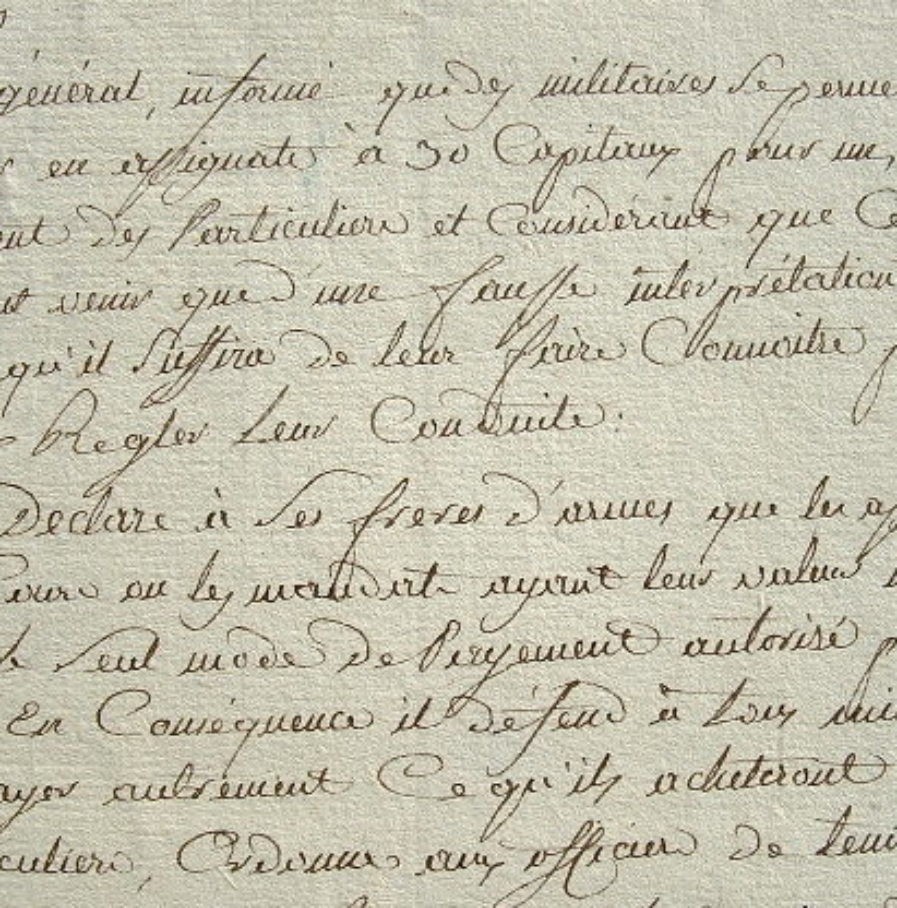 général, informé que des militaires se perme
en assignats à 30 Capitaux pour un,
ent des Particuliers et Considérant que Ce
ut venir que d'une fausse interprétation
qu'il Suffira de leur faire Connoitre p
Regler Leur Conduite:
Declare à Ses freres d'armes que les as
Cours ou les mandats ayant leur valeur
le Seul mode de Payement autorisé p
En Conséquence il défend à tous mi
ayer autrement Ce qu'ils acheteront
culiers, Ordonne aux officiers de teni